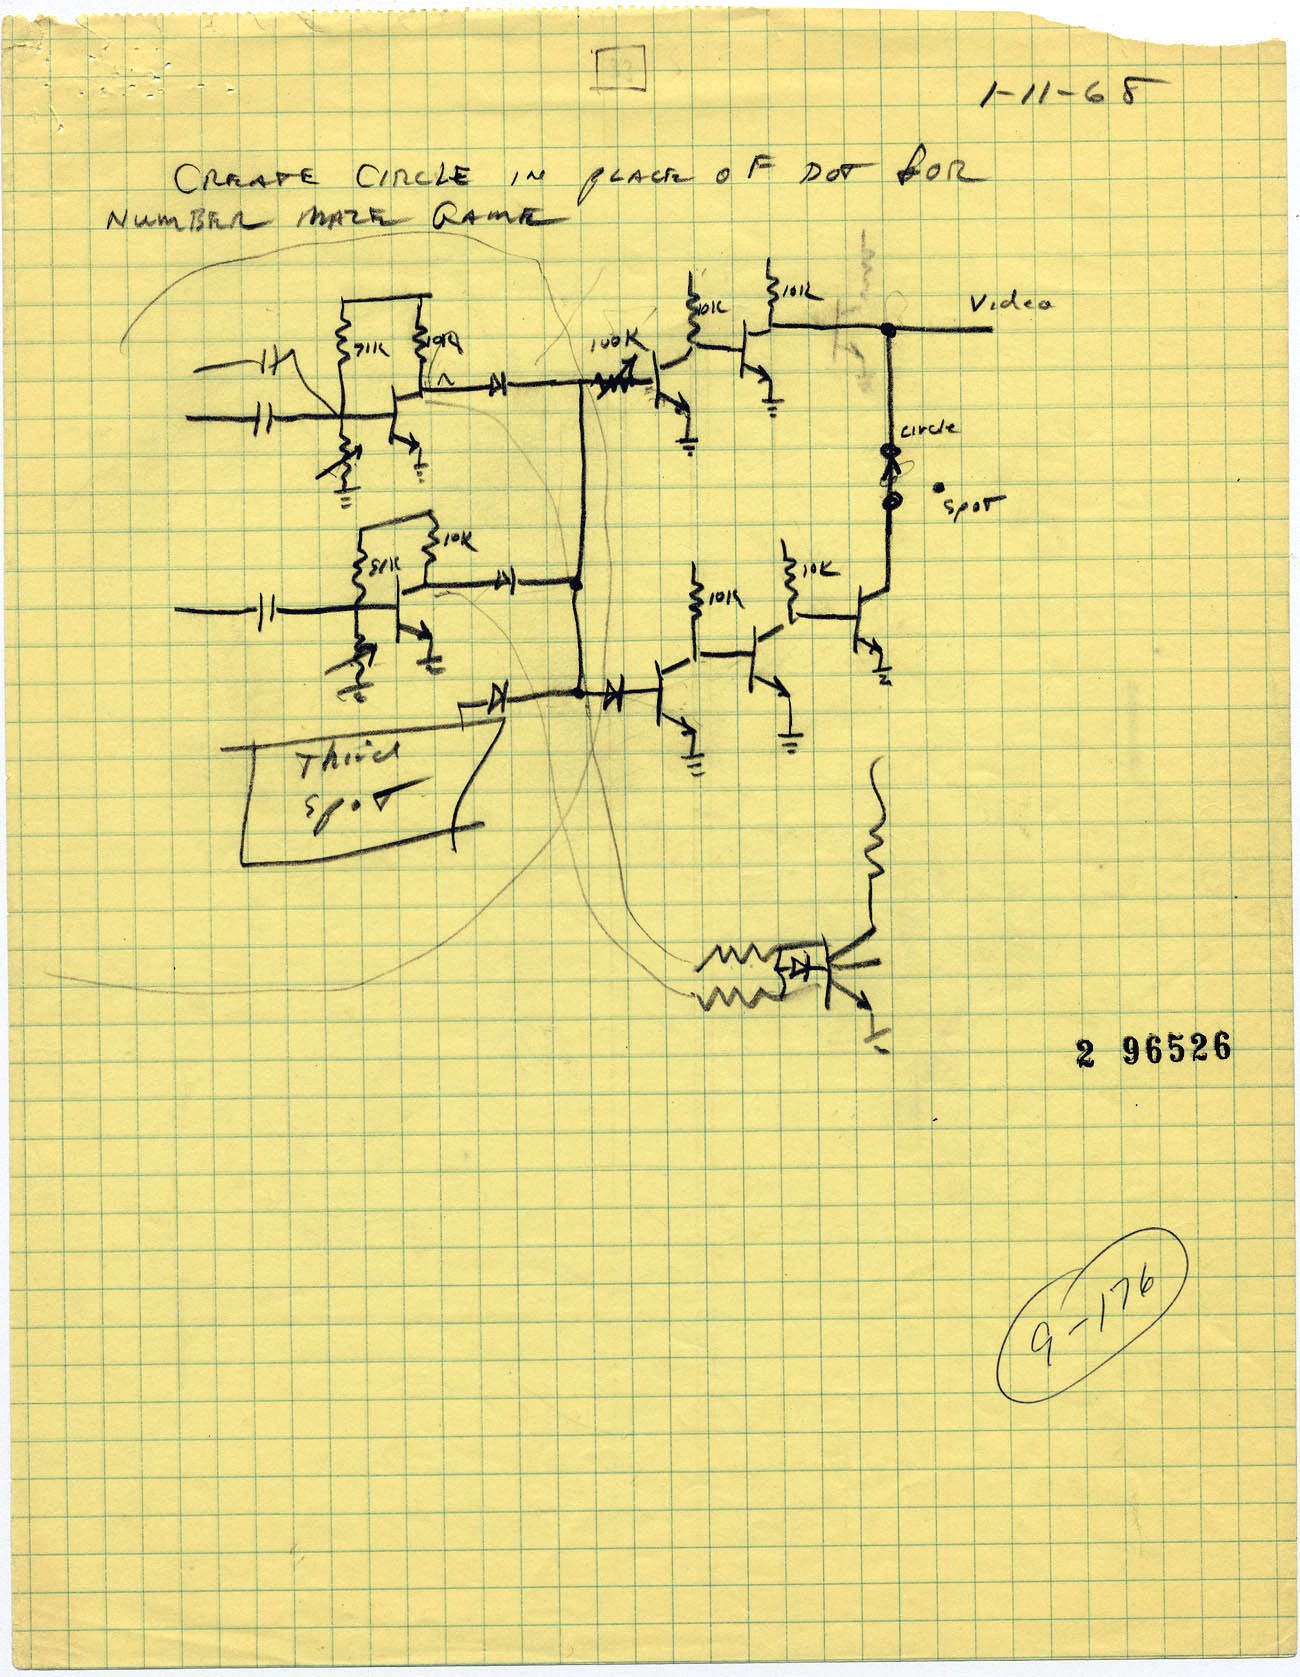 1-11-68
CREATE CIRCLE IN PLACE OF DOT FOR
NUMBER MAZE GAME
10K
10K
Video
100K
10K
circle
spot
10K
10K
10K
Third
spot
2 96526
9-176